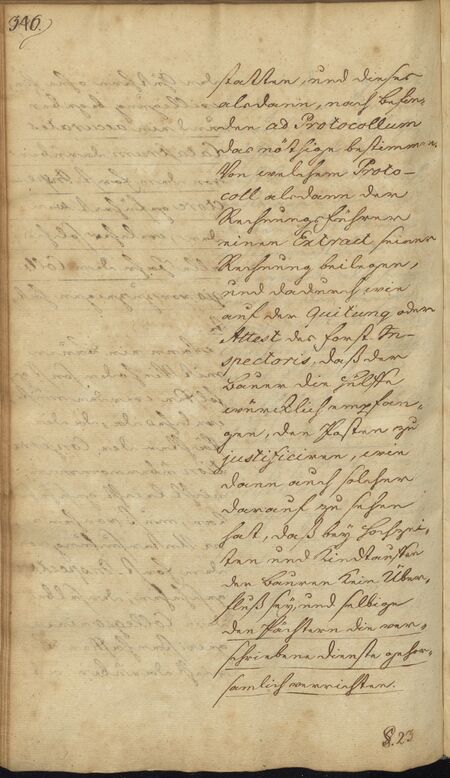 346.
statten, und dieses
alsdann, nach befin-
den ad Protocollum
das nöthige bestimmen.
Von welchem Proto-
coll alsdann der
Rechnungsführer
einen Extract seiner
Rechnung beilegen,
und dadurch wie
auf der Quitung oder
Attest des Forst-In-
spectoris, daß der
Bauer die Hülffe
würcklich empfan-
gen, den Posten zu
justificiren, wie
dann auch solcher
darauf zu sehen
hat, daß bey Hochzei-
ten und Kindtauffen
der Bauren kein Über-
fluß sey, und selbige
den Pächtern die ver-
schriebene dienste gehor-
samlich verrichten.
§. 23